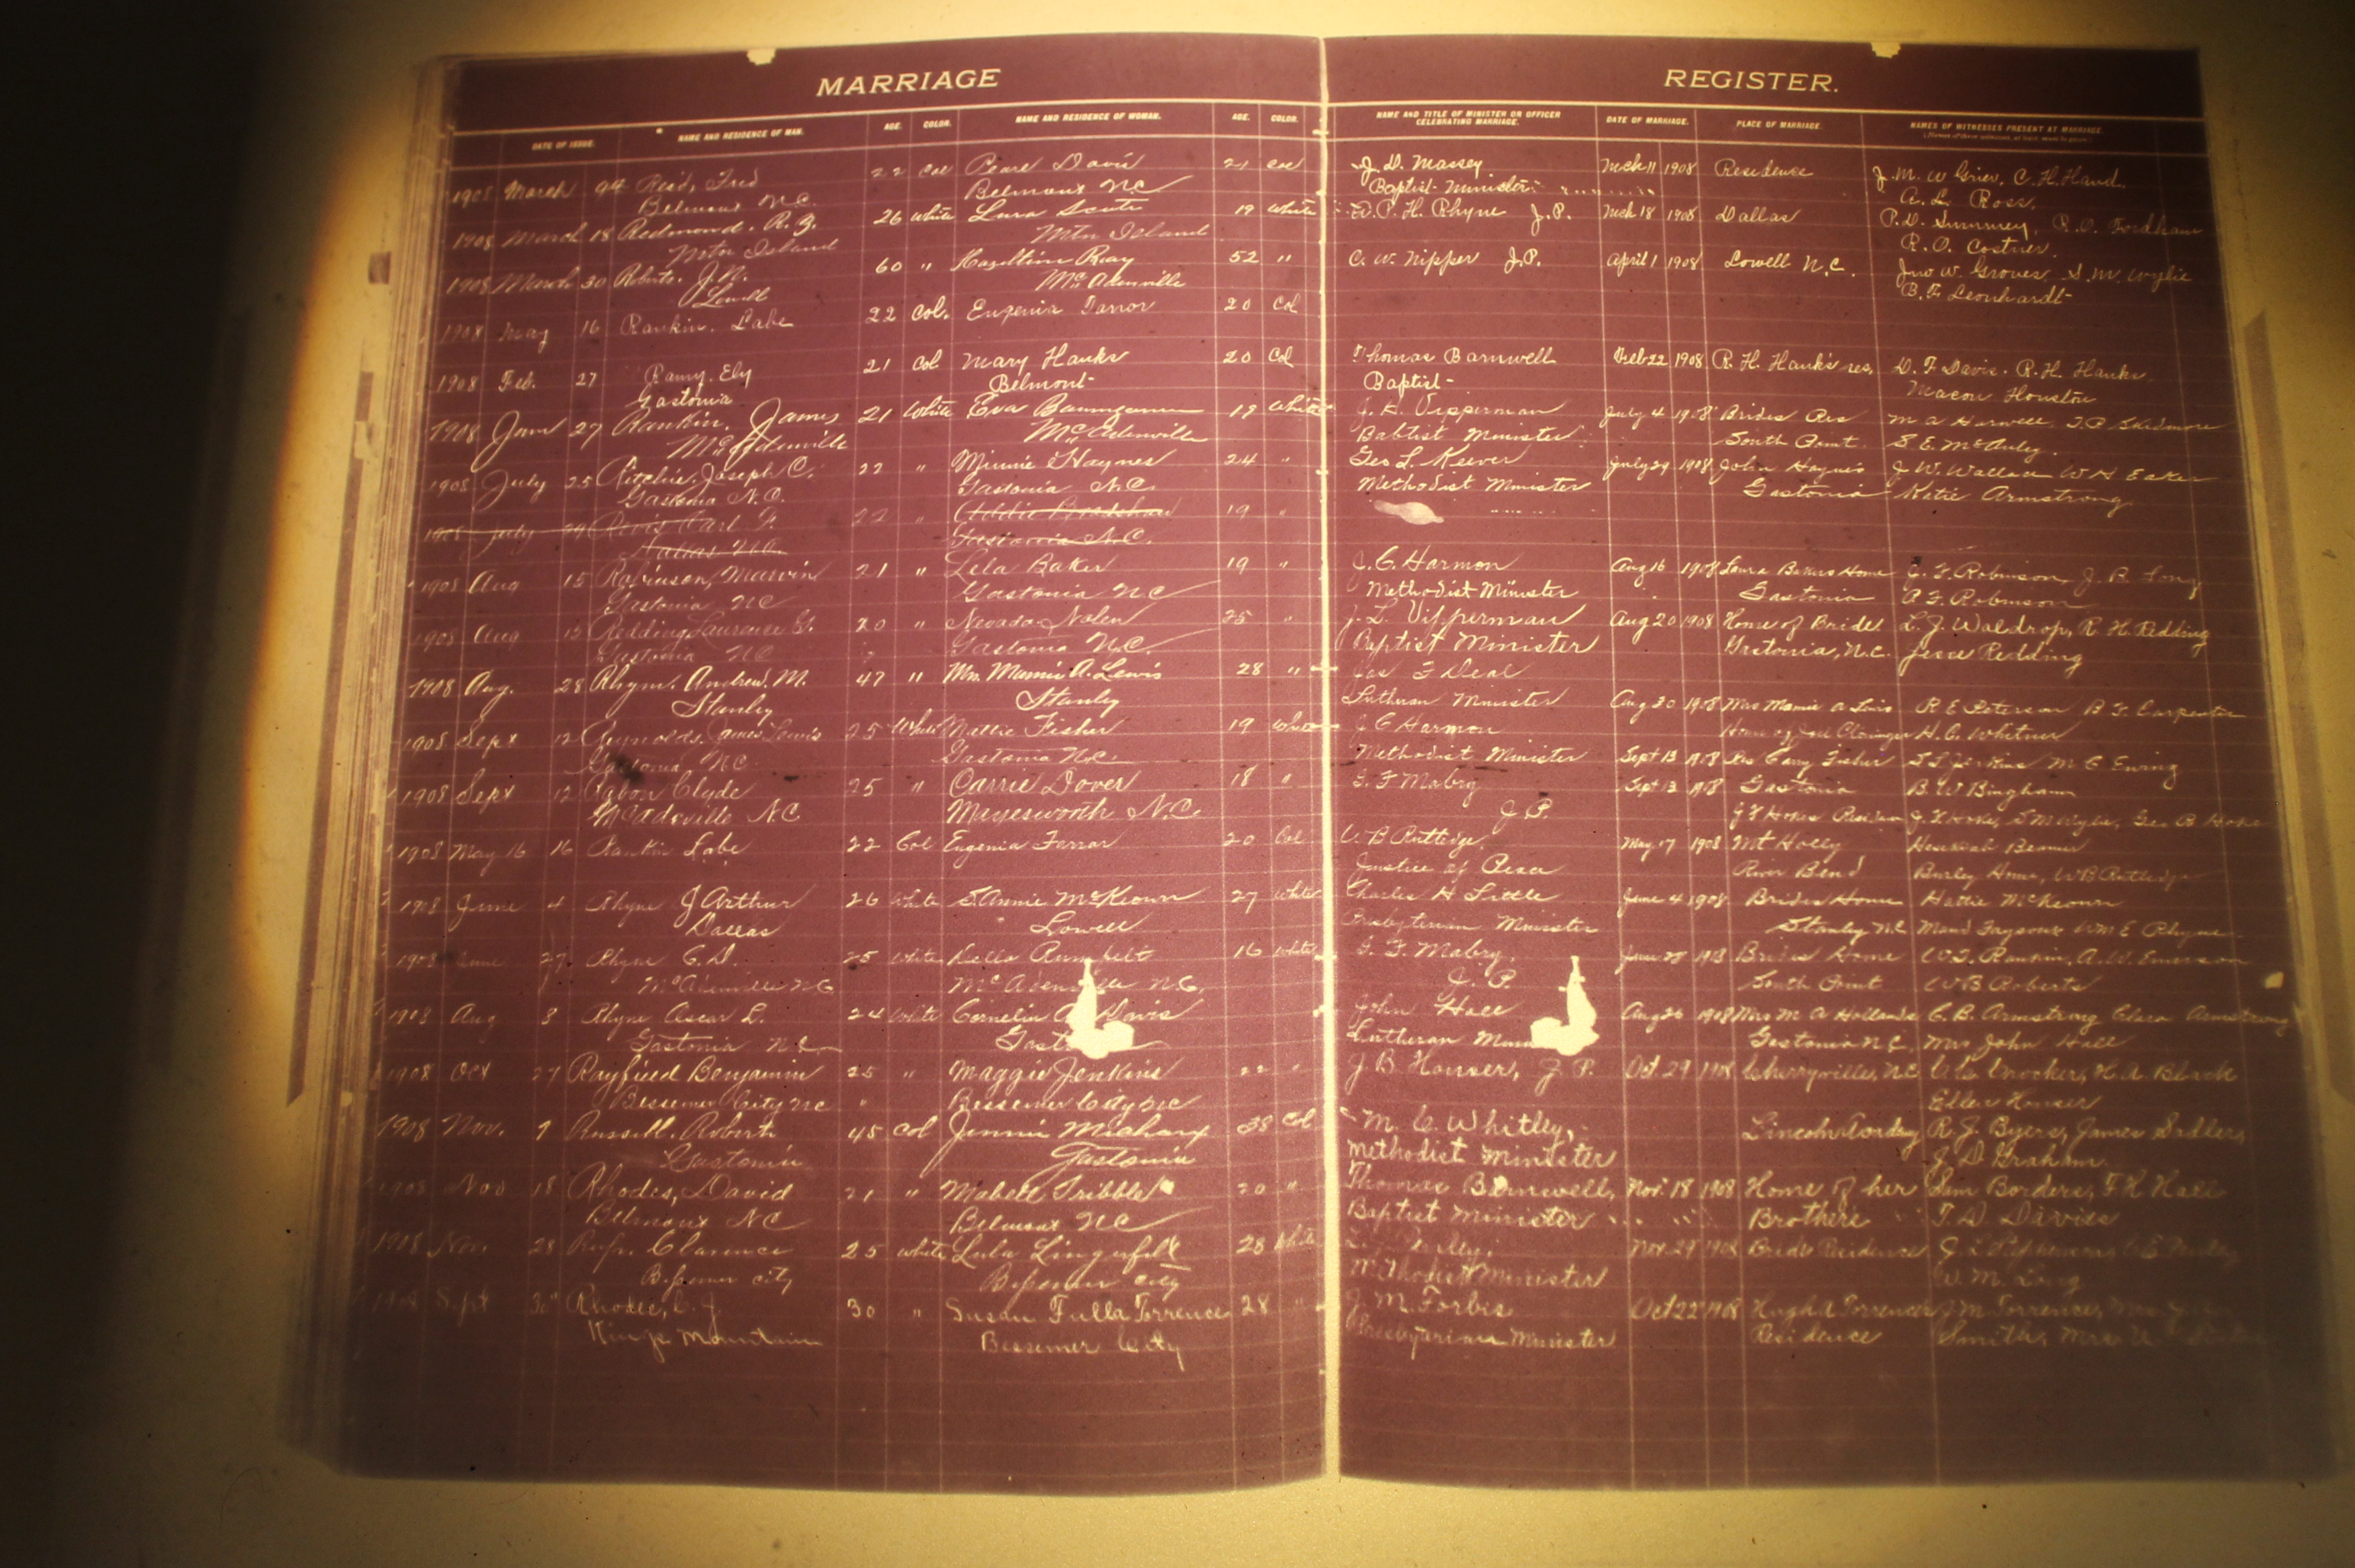 MARRIAGE REGISTER.
DATE OF ISSUE. NAME AND RESIDENCE OF MAN. AGE. COLOR. NAME AND RESIDENCE OF WOMAN. AGE. COLOR. NAME AND TITLE OF MINISTER OR OFFICER CELEBRATING MARRIAGE. DATE OF MARRIAGE. PLACE OF MARRIAGE. NAMES OF WITNESSES PRESENT AT MARRIAGE.
1908 March Reid, Fred 22 Col Pearl Davis 21 Col J. D. Massey Mch 11 1908 Residence J. M. W Grier, C. H. Hand,
Belmont N.C. Belmont NC Baptist Minister A. L. Ross,
1908 March 18 Redmond. R. 26 White Lura 19 White P. H. Rhyne J.P. Mch 18 1908 Dallas P. D. Summey, R. O. Fordham
Mtn Island Mtn Island R. O. Costner.
1908 March 30 Roberts. J. 60 " Hazeltine Ray 52 " C. W. Nipper J.P. April 1 1908 Lowell N.C. Jno W. Groves S. M. Wylie
Lowell McAdenville B. F. Leonhardt
1908 May 16 Rankin. Labe 22 Col. Eugenia 20 Col
1908 Feb. 27 Ramy. Ely 21 Col Mary Hanks 20 Col Thomas Barnwell Feb 22 1908 R. H. Hanks res, D. F Davis. R. H. Hanks
Gastonia Belmont Baptist Macon Houston
1908 June 27 Rankin, James 21 White Eva 19 White Vipperman July 4 1908 Brides Res M A Harwell, Skidmore
McAdenville McAdenville Babtist Minister South Point S E. McAuly.
1908 July 25 Ritchie, Joseph C. 22 " Minnie Haynes 24 " Geo L. Keever July 29 1908 John Haynes J W. Wallace W H Eaker
Gastonia N.C. Gastonia N.C. Methodist Minister Gastonia Katie Armstrong
July Carl F. 22 " Addie 19 "
Dallas N.C. Gastonia N.C.
1908 Aug 15 Robinson, Marvin 21 " Lela Baker 19 " J. C. Harmon Aug 16 1908 Bakers Home Robinson J. B. Long
Gastonia NC Gastonia NC Methodist Minister Gastonia F. Robinson
1908 Aug Redding, Laurence G. 20 " Nevada Nolen 25 " J. L. Vipperman Aug 20 1908 Home of Bride L. J. Waldrop, R. H. Redding
Gastonia NC Gastonia N.C. Baptist Minister Gastonia, N.C. Jesse Redding
1908 Aug. 28 Rhyne. Andrew. M. 47 " Mrs. Mamie A. Lewis 28 " Jas F Deal
Stanly Stanly Lutheran Minister Aug 30 1908 Mrs Mamie A Lewis R E Peterson B F. Carpenter
1908 Sept 12 Reynolds, James Lewis 25 White Mattie Fisher 19 White J C Harmon Home of H. C. Whitner
Gastonia, NC Gastonia N.C. Methodist Minister Sept 13 1908 Res Fisher Jenkins M C Ewing
1908 Sept 12 Clyde 25 " Carrie Dover 18 " G. F Mabry Sept 13 1908 Gastonia B. W Bingham
McAdsville N.C Mayesworth N.C. J P.
1908 May 16 16 Rankin Labe 22 Col Eugenia Farrar 20 Col W. B Rutledge May 17 1908 Mt Holly Hezekiah
Justice of Peace River Bend W B Rutledge
1908 June 4 Rhyne J Arthur 26 White S. Annie McKeown 27 White Charles H Little June 4 1908 Brides Home Hattie McKeown
Dallas Lowell Presbyterian Minister Stanly NC Wm E Rhyne
1908 June 27 Rhyne C. D. 25 White Della 16 White G. F. Mabry. June 1908 Brides Home Rankin, A. W. Emerson
McAdenville N.C. N.C. J. P. South Point W B Roberts
1908 Aug 8 Rhyne Oscar L. 24 White Cornelia Davis John Hall Aug 26 1908 Mrs M A Hollands C. B. Armstrong Clara Armstrong
Gastonia N.C. Lutheran Gastonia N.C. Mrs John Hall
1908 Oct 27 Rayfield Benjamin 25 " Maggie Jenkins 22 " J. B. Houser, J P. Oct. 29 1908 Cherryville, N.C. Crocker, H. A. Black
Bessemer City NC Bessemer City NC Houser
1908 Nov. 7 Russell, Robert 45 Col Jennie 38 Col M. C. Whitley, Lincoln R. J. Byers, James Sadler,
Gastonia Gastonia Methodist Minister J. D Graham
1908 Nov 18 Rhodes, David 21 " Mabell Tribble 20 " Thomas Barnwell, Nov. 18 1908 Home of her Sam Borders, F. H Hall
Belmont NC Belmont NC Baptist Minister Brother T. D. Davies
1908 Nov. 28 Clarence 25 White Lula Lingerfelt 28 White Nov. 29 1908 Brides Residence
Bessemer City Bessemer City Methodist Minister W. M. Long
1908 Sept 30 Rhodes, C. J. 30 " Susan Fulla Torrence 28 " J. M. Forbis Oct 22 1908 Hugh A Torrences J M Torrence,
Kings Mountain Bessemer City Presbyterian Minister Residence Smith,